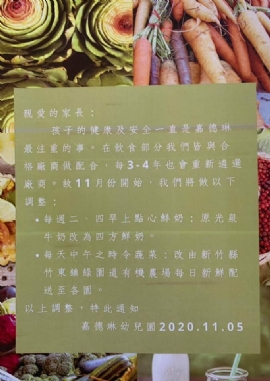 親愛的家長：
孩子的健康及安全一直是嘉德琳
最注重的事。在飲食部分我們皆與合
格廠商做配合，每3-4年也會重新遴選
廠商。故11月份開始，我們將做以下
調整：
•每週二、四早上點心鮮奶：原光泉
牛奶改為四方鮮奶。
•每天中午之時令蔬菜：改由新竹縣
竹東鎮綠園道有機農場每日新鮮配
送至各園。
以上調整，特此通知
嘉德琳幼兒園2020.11.05